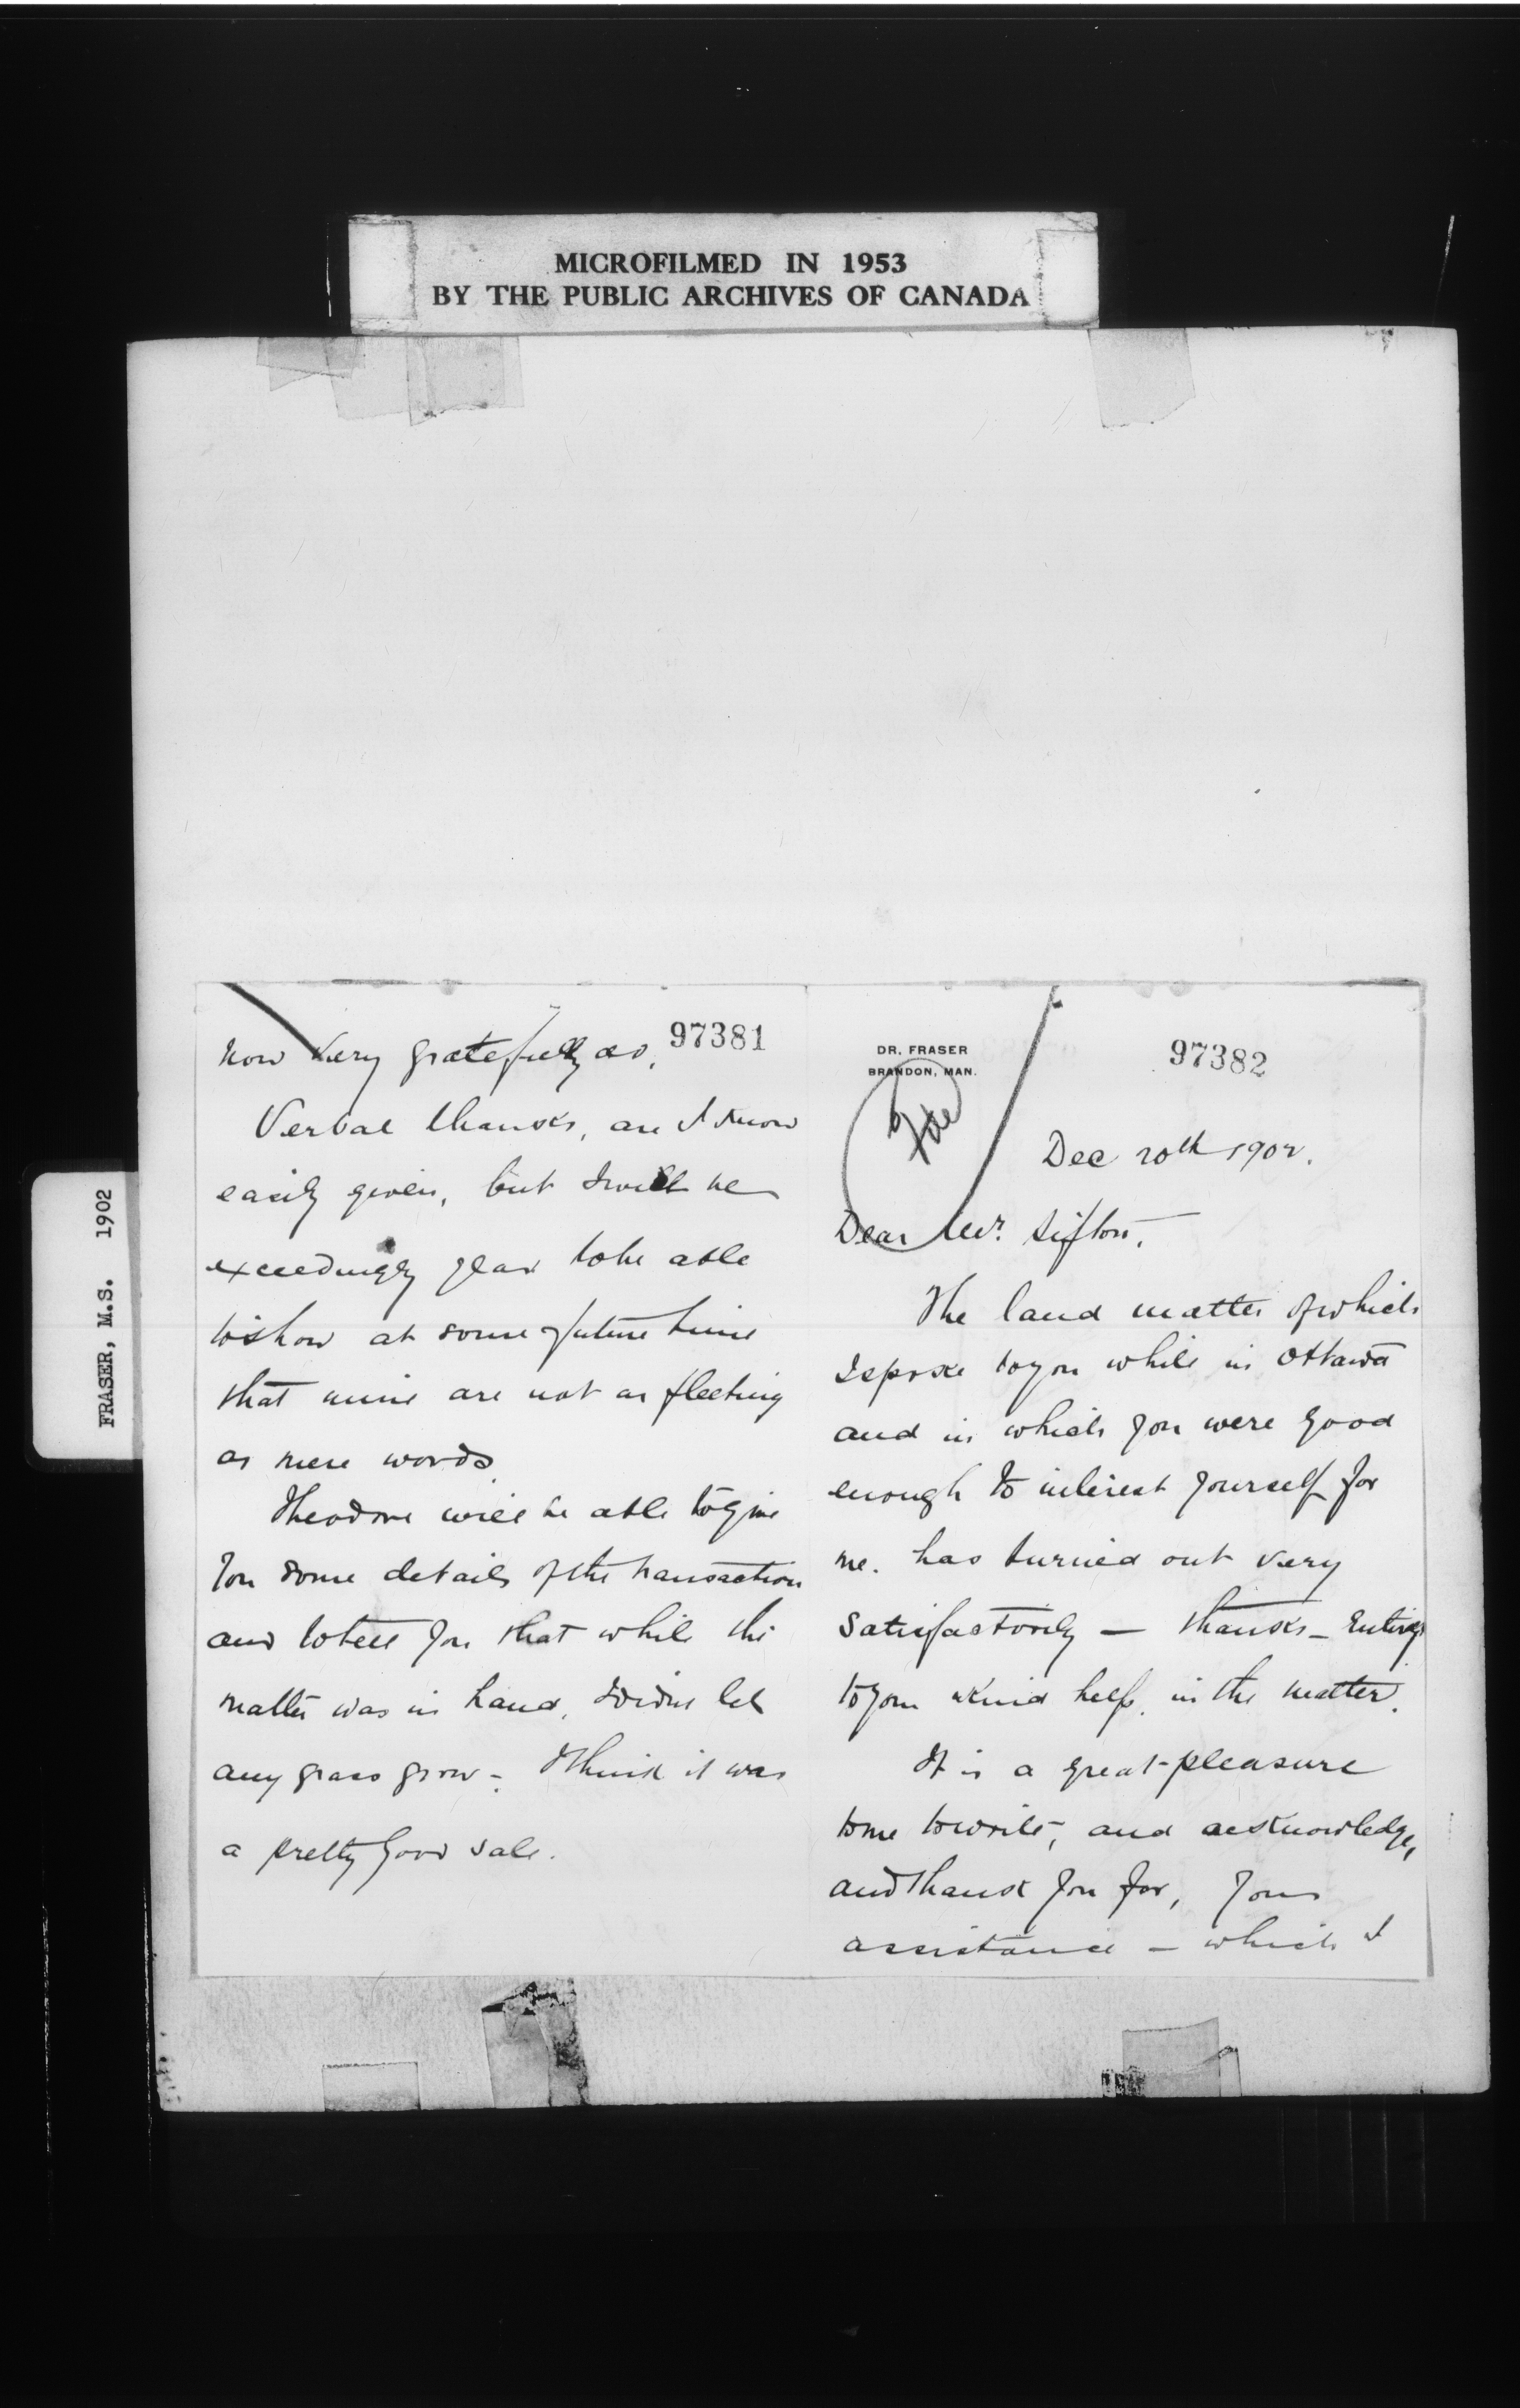 MICROFILMED IN 1953
BY THE PUBLIC ARCHIVES OF CANADA
FRASER, M.S. 1902
97382
DR. FRASER
BRANDON, MAN.
File
Dec 20th 1902.
Dear Mr. Sifton,
The land matter of which
I spoke to you while in Ottawa
and in which you were good
enough to interest yourself for
me. has turned out very
satisfactorily — thanks — Entirely
to your kind help, in the matter.
It is a great pleasure
to me to write, and acknowledge,
and thank you for, your
assistance — which I
97381
now very gratefully do.
Verbal thanks, are I know
easily given, but I will be
exceedingly glad to be able
to show at some future time
that mine are not as fleeting
as mere words.
Theodore will be able to give
you some details of the transaction
and to tell you that while the
matter was in hand, I didnt let
any grass grow - I think it was
a pretty good sale.